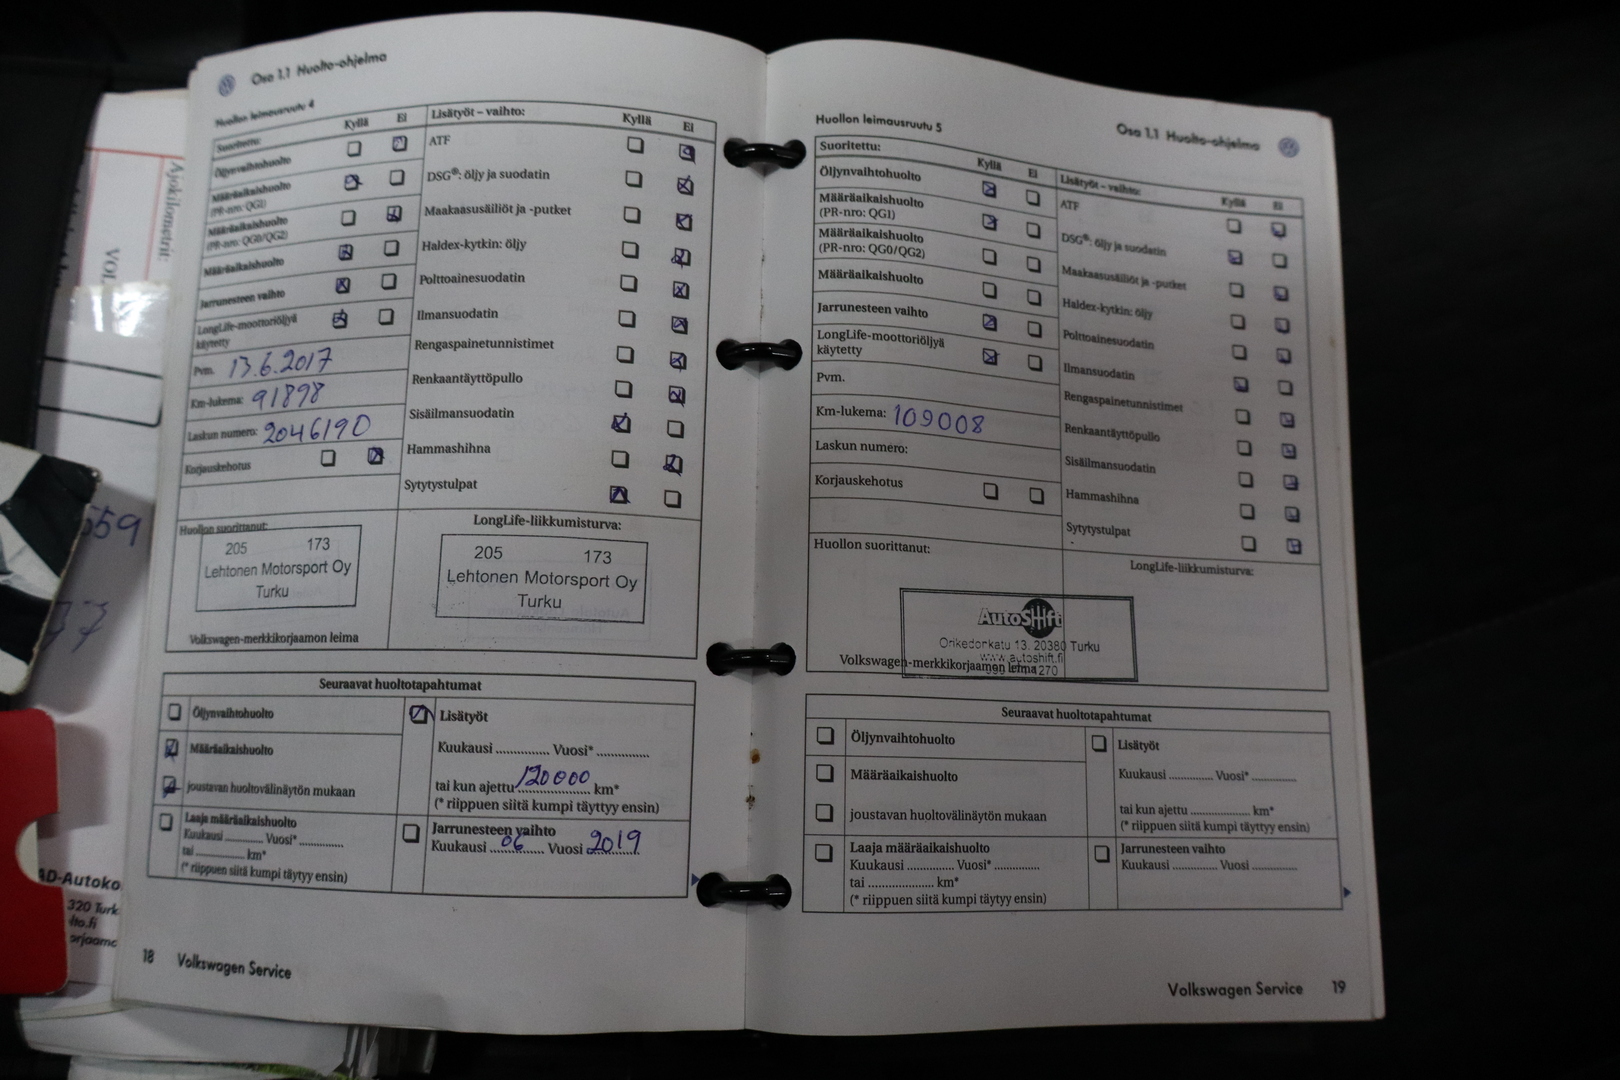 Osa 1.1 Huolto-ohjelma
Huollon leimausruutu 4
Suoritettu: Kyllä Ei
Öljynvaihtohuolto
Määräaikaishuolto
(PR-nro: QG1)
Määräaikaishuolto
(PR-nro: QG0/QG2)
Määräaikaishuolto
Jarrunesteen vaihto
LongLife-moottoriöljyä
käytetty
Pvm. 13.6.2017
Km-lukema: 91898
Laskun numero: 2046190
Korjauskehotus
Lisätyöt – vaihto: Kyllä Ei
ATF
DSG®: öljy ja suodatin
Maakaasusäiliöt ja -putket
Haldex-kytkin: öljy
Polttoainesuodatin
Ilmansuodatin
Rengaspainetunnistimet
Renkaantäyttöpullo
Sisäilmansuodatin
Hammashihna
Sytytystulpat
Huollon suorittanut:
205 173
Lehtonen Motorsport Oy
Turku
Volkswagen-merkkikorjaamon leima
LongLife-liikkumisturva:
205 173
Lehtonen Motorsport Oy
Turku
Seuraavat huoltotapahtumat
Öljynvaihtohuolto
Määräaikaishuolto
joustavan huoltovälinäytön mukaan
Laaja määräaikaishuolto
Kuukausi ............ Vuosi* ..............
tai ................ km*
(* riippuen siitä kumpi täytyy ensin)
Lisätyöt
Kuukausi ............... Vuosi* ...............
tai kun ajettu 120000 km*
(* riippuen siitä kumpi täyttyy ensin)
Jarrunesteen vaihto
Kuukausi 06 Vuosi 2019
18 Volkswagen Service
Huollon leimausruutu 5
Osa 1.1 Huolto-ohjelma
Suoritettu: Kyllä Ei
Öljynvaihtohuolto
Määräaikaishuolto
(PR-nro: QG1)
Määräaikaishuolto
(PR-nro: QG0/QG2)
Määräaikaishuolto
Jarrunesteen vaihto
LongLife-moottoriöljyä
käytetty
Pvm.
Km-lukema: 109008
Laskun numero:
Korjauskehotus
Lisätyöt – vaihto: Kyllä Ei
ATF
DSG®: öljy ja suodatin
Maakaasusäiliöt ja -putket
Haldex-kytkin: öljy
Polttoainesuodatin
Ilmansuodatin
Rengaspainetunnistimet
Renkaantäyttöpullo
Sisäilmansuodatin
Hammashihna
Sytytystulpat
Huollon suorittanut:
LongLife-liikkumisturva:
AutoShift
Orikedonkatu 13, 20380 Turku
www.autoshift.fi
Volkswagen-merkkikorjaamon leima 270
Seuraavat huoltotapahtumat
Öljynvaihtohuolto
Määräaikaishuolto
joustavan huoltovälinäytön mukaan
Laaja määräaikaishuolto
Kuukausi ............... Vuosi* ...............
tai .................... km*
(* riippuen siitä kumpi täytyy ensin)
Lisätyöt
Kuukausi ............... Vuosi* ...............
tai kun ajettu .................... km*
(* riippuen siitä kumpi täyttyy ensin)
Jarrunesteen vaihto
Kuukausi ............... Vuosi ...............
Volkswagen Service 19
Ajokilometrit:
VOL
559
37
AD-Autoko
320 Turk
lto.fi
orjaamo